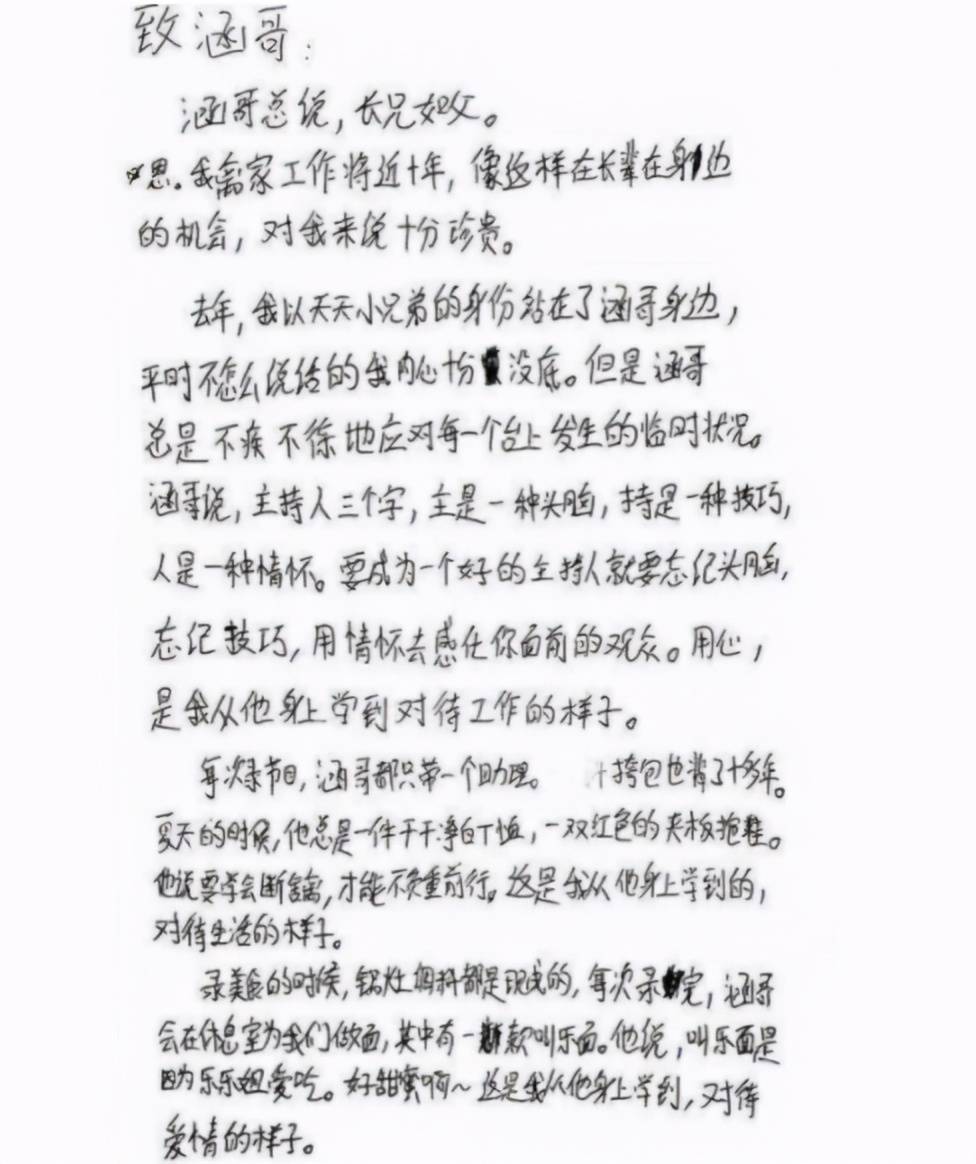 致涵哥：
涵哥总说，长兄如父。
恩。我离家工作将近十年，像这样在长辈在身边
的机会，对我来说十分珍贵。
去年，我以天天小兄弟的身份站在了涵哥身边，
平时不怎么说话的我内心十分没底。但是涵哥
总是不疾不徐地应对每一个台上发生的临时状况。
涵哥说，主持人三个字，主是一种头脑，持是一种技巧，
人是一种情怀。要成为一个好的主持人就要忘记头脑，
忘记技巧，用情怀去感任你面前的观众。用心，
是我从他身上学到对待工作的样子。
每次录节目，涵哥都只带一个助理。挎包也背了十多年。
夏天的时候，他总是一件干干净白T恤，一双红色的夹板拖鞋。
他说要学会断舍离，才能不负重前行。这是我从他身上学到的，
对待生活的样子。
录美食的时候，锅灶调料都是现成的，每次录完，涵哥
会在休息室为我们做面，其中有一款叫乐面。他说，叫乐面是
因为乐乐姐爱吃。好甜蜜啊～这是我从他身上学到，对待
爱情的样子。